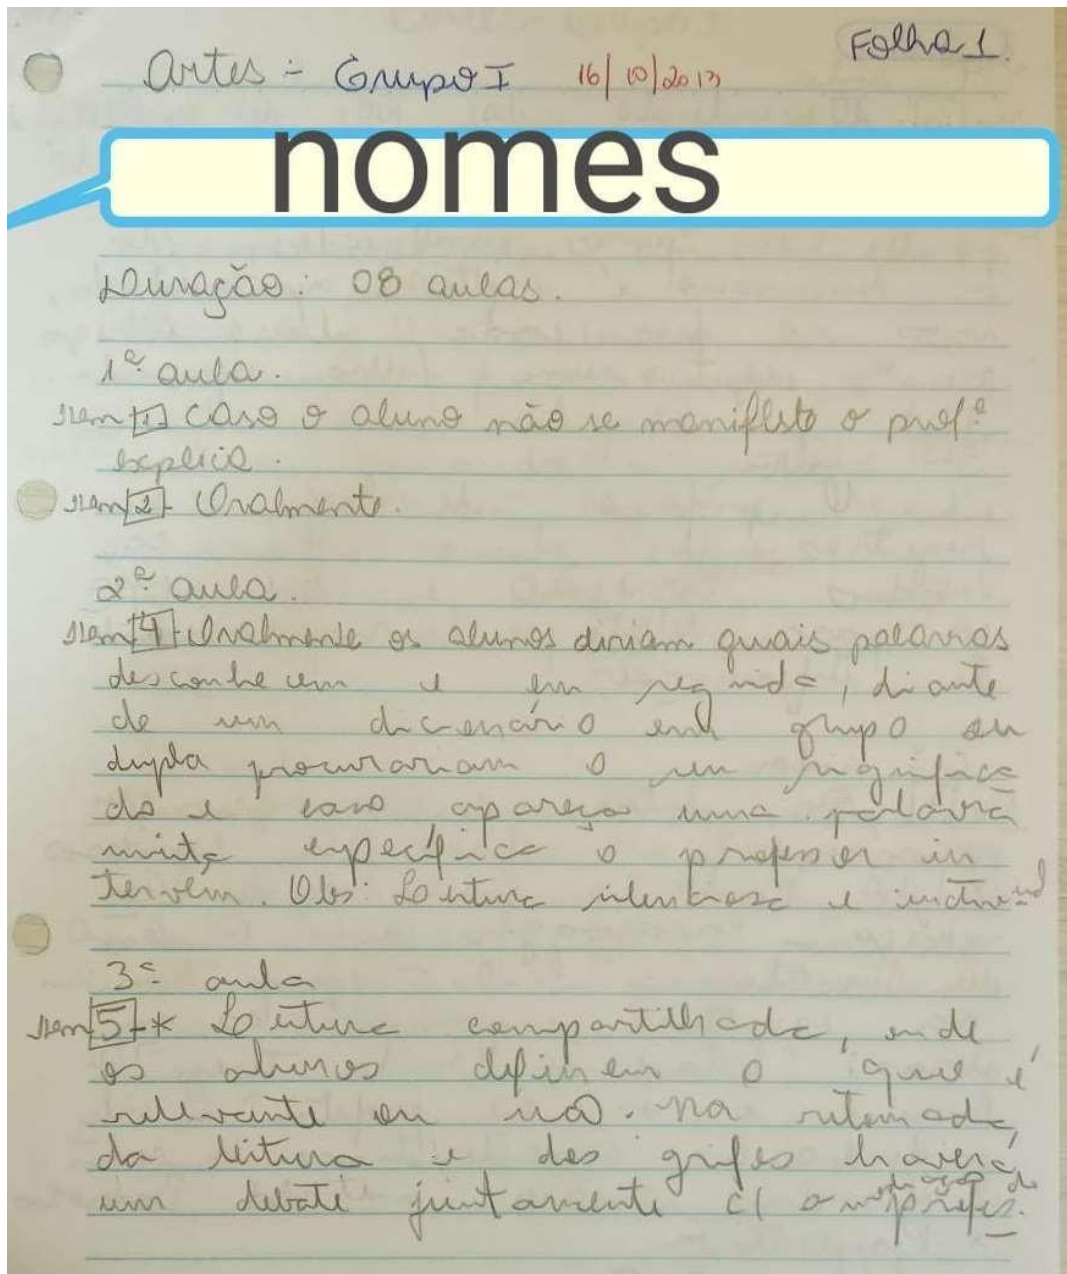 Folha 1.
Artes - Grupo I 16/10/2013
nomes
Duração: 08 aulas.
1ª aula.
Item 1 Caso o aluno não se manifesto o profº
explica.
Item 2 - Oralmente.
2ª aula.
Item 4 - Oralmente os alunos diriam quais palavras
desconhecem e em seguida, diante
de um dicenário em grupo ou
dupla procurariam o seu significa
do e caso apareça uma palavra
muita específica o professor in
tervém. Obs: Leitura silenciosa e
3ª aula
Item 5 - * Leitura compartilhada, onde
os alunos definem o que é
relevante ou não. na retomada,
da leitura e dos grifos haverá
um debate juntamente c/ a mediação do profes.